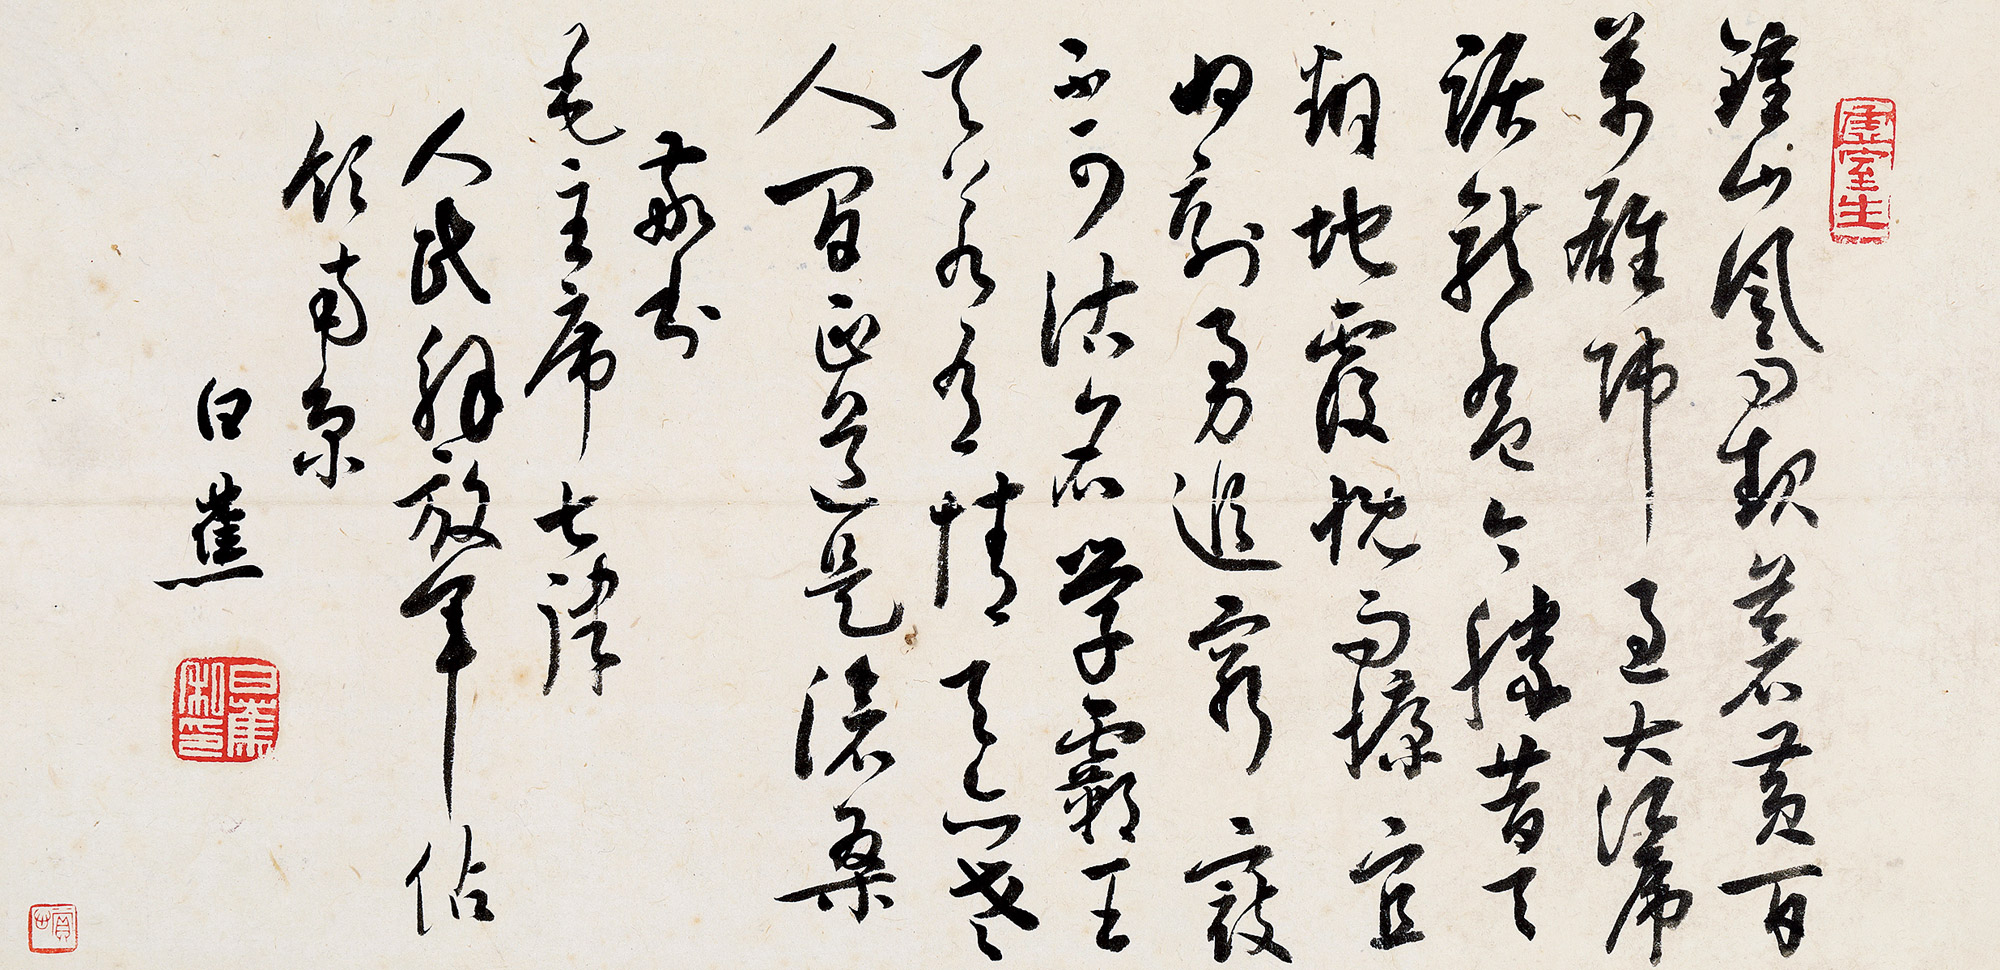 虛室生
鍾山風雨起蒼黃百
萬雄師過大江虎
踞龍盤今勝昔天
翻地覆慨而慷宜
將剩勇追窮寇
不可沽名学霸王
天若有情天亦老
人間正道是滄桑
敬書
毛主席七律
人民解放軍佔
領南京
白蕉
白蕉私印